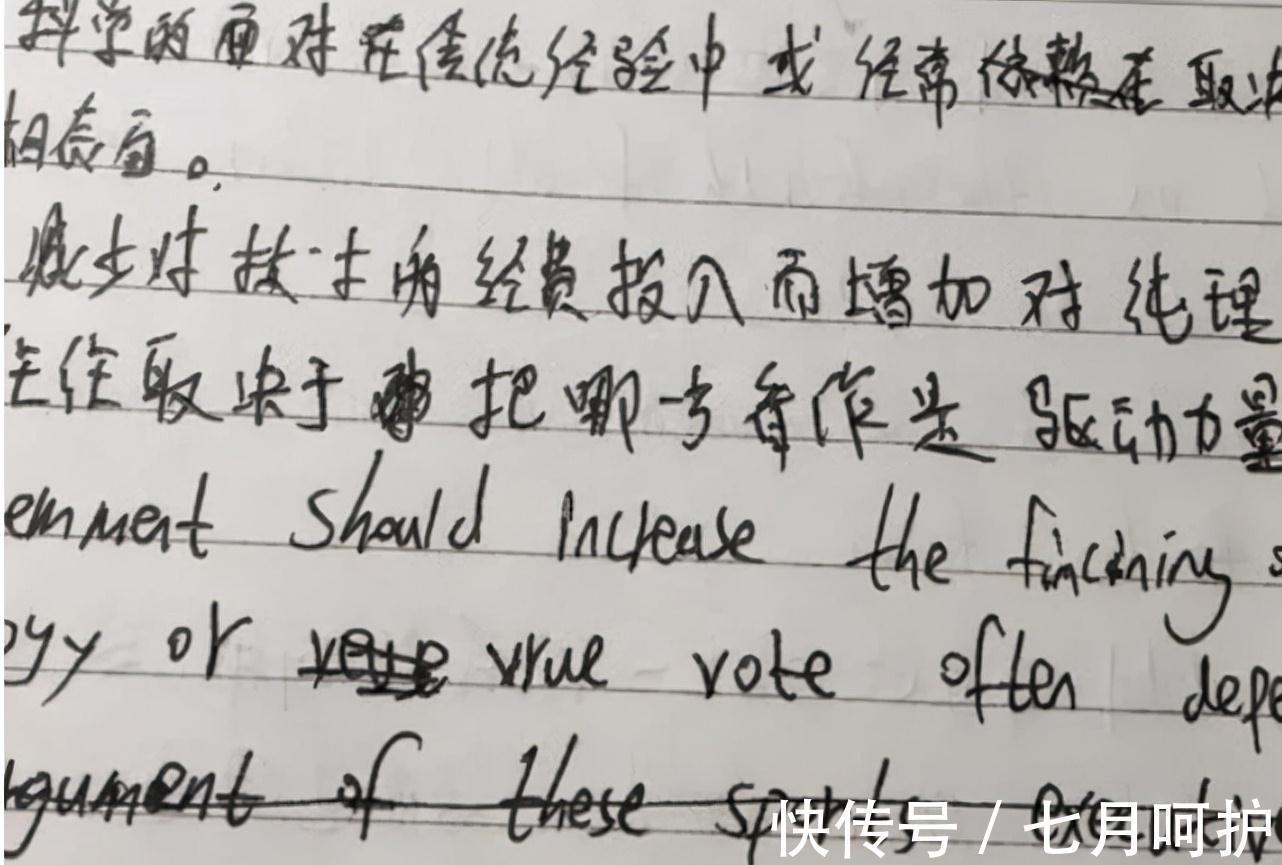 科学的面对在传统经验中或经常依赖在取决
相态面。
减少对技术的经费投入而增加对纯理
往往取决于把哪一方看作是驱动力量
ernment should increase the fincining s
ogy or vrue vote often depe
rgument of these sports executive
快传号 / 七月呵护